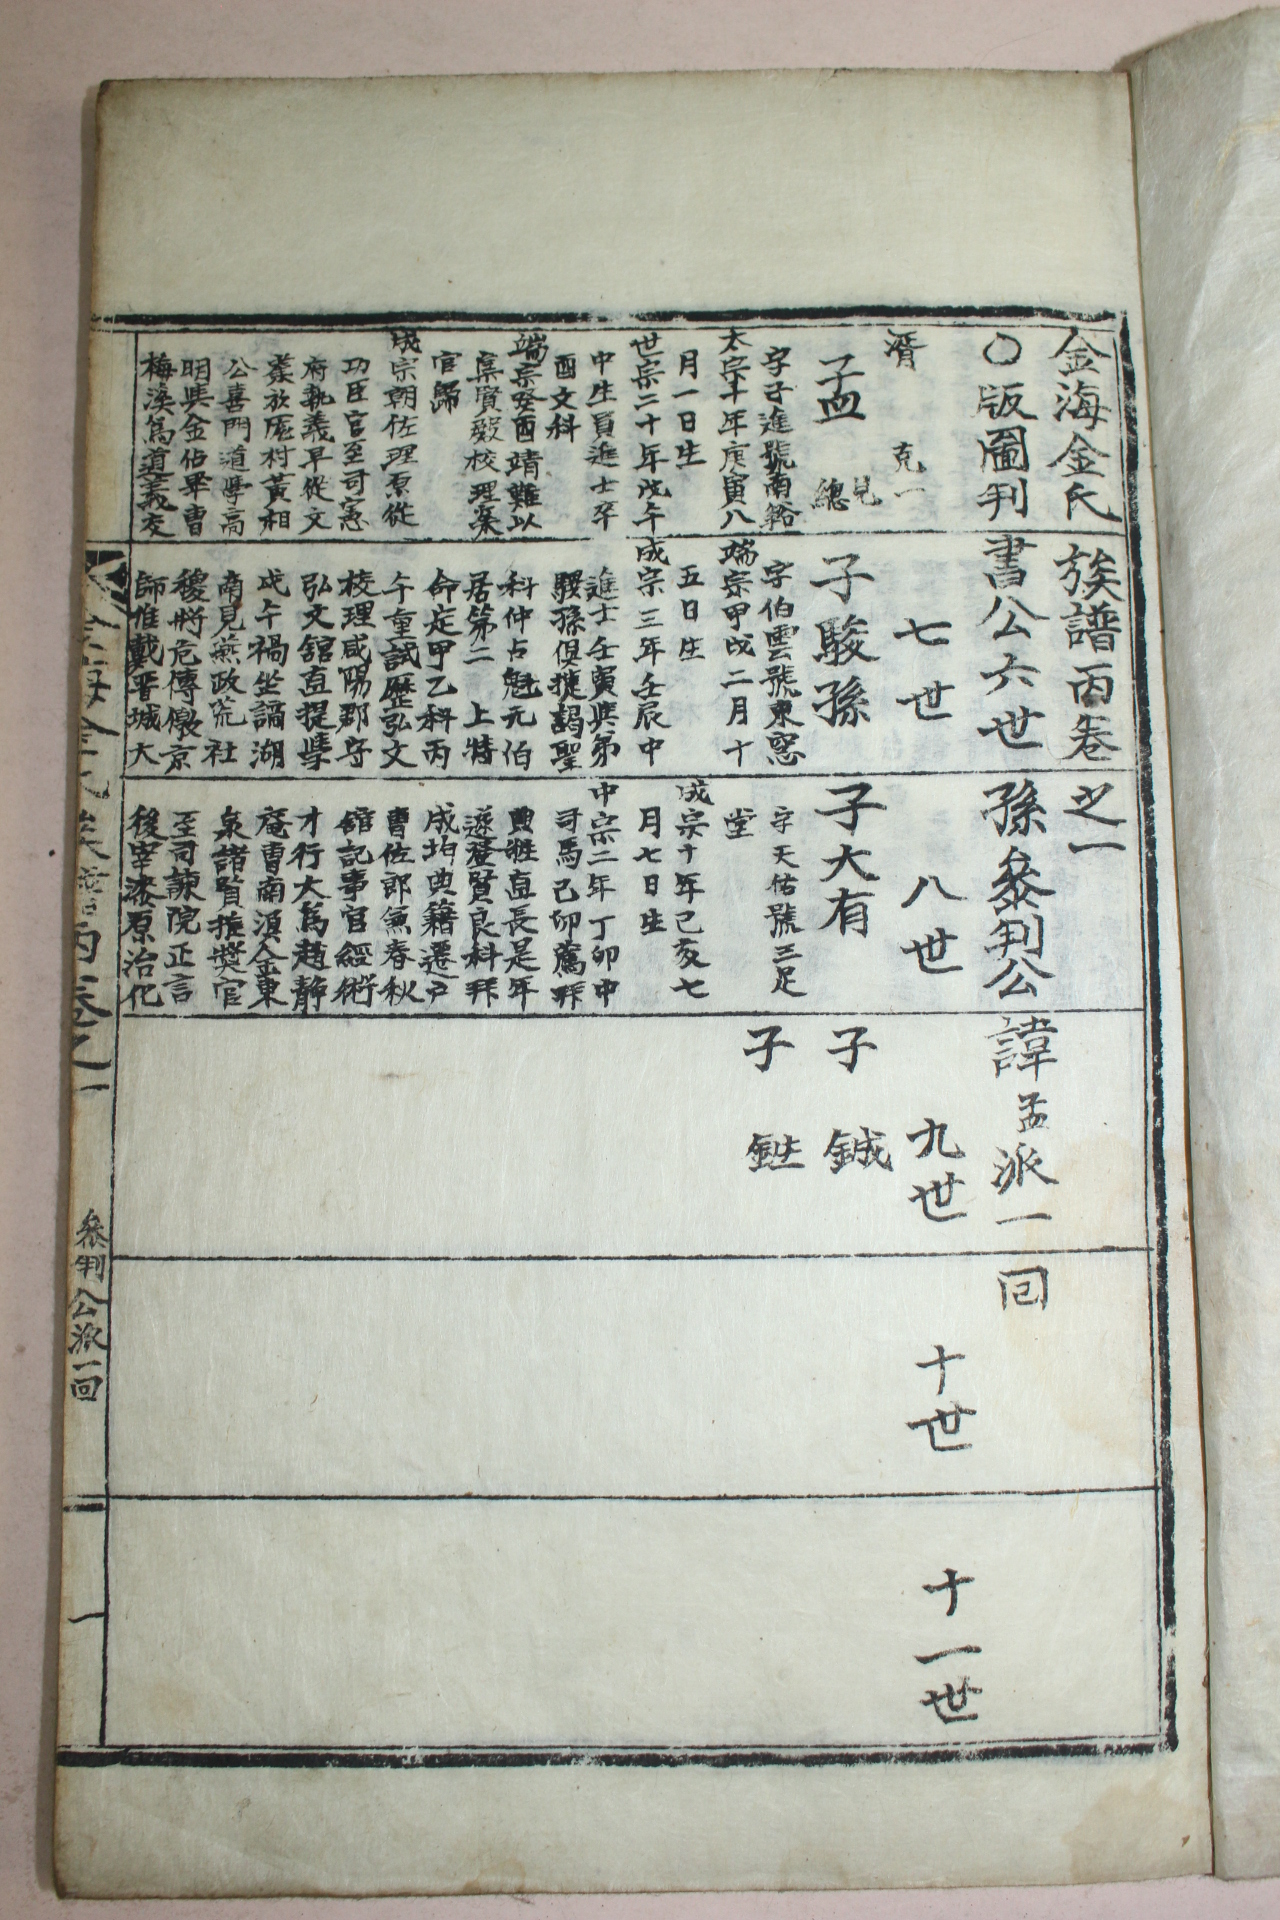 金海金氏族譜丙卷之一
〇版圖判書公六世孫叅判公諱孟派一回
七世
八世
九世
十世
十一世
克一
孟
見總
字子進號南谿
太宗十年庚寅八
月一日生
世宗二十年戊午
中生員進士卒
酉文科
端宗癸酉靖難以
集賢殿校理棄
官歸
成宗朝佐理原從
功臣官至司憲
府執義早從文
蔡於厖村黃相
公喜門道學高
明與金佔畢曺
梅溪爲道義交
子駿孫
字伯雲號東窓
端宗甲戌二月十
五日生
成宗三年壬辰中
進士壬寅與弟
驥孫俱捷謁聖
科仲占魁元伯
居第二 上特
命定甲乙科丙
午重試歷弘文
校理咸陽郡守
弘文舘直提學
戊午禍坐謫湖
南見燕政荒社
稷將危傳檄京
師推戴晋城大
子大有
字天佑號三足
堂
成宗十年己亥七
月七日生
中宗二年丁卯中
司馬己卯薦拜
典牲直長是年
遂登賢良科拜
成均典籍遷戶
曺佐郎兼春秋
舘記事官經術
才行大爲趙靜
庵曺南溟金東
泉諸賢推奬官
至司諫院正言
後宰漆原治化
子 鋮
子
金海金氏族譜丙卷之一
叅判公派一回
一